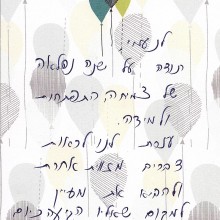 לנעמי
תודה על שנה נפלאה
של צמיחה, התפתחות
ולמידה.
עזרת לנו לראות
דברים מזוית אחרת
ולהביא את מעיין
למקום שאליו הגיעה כיום